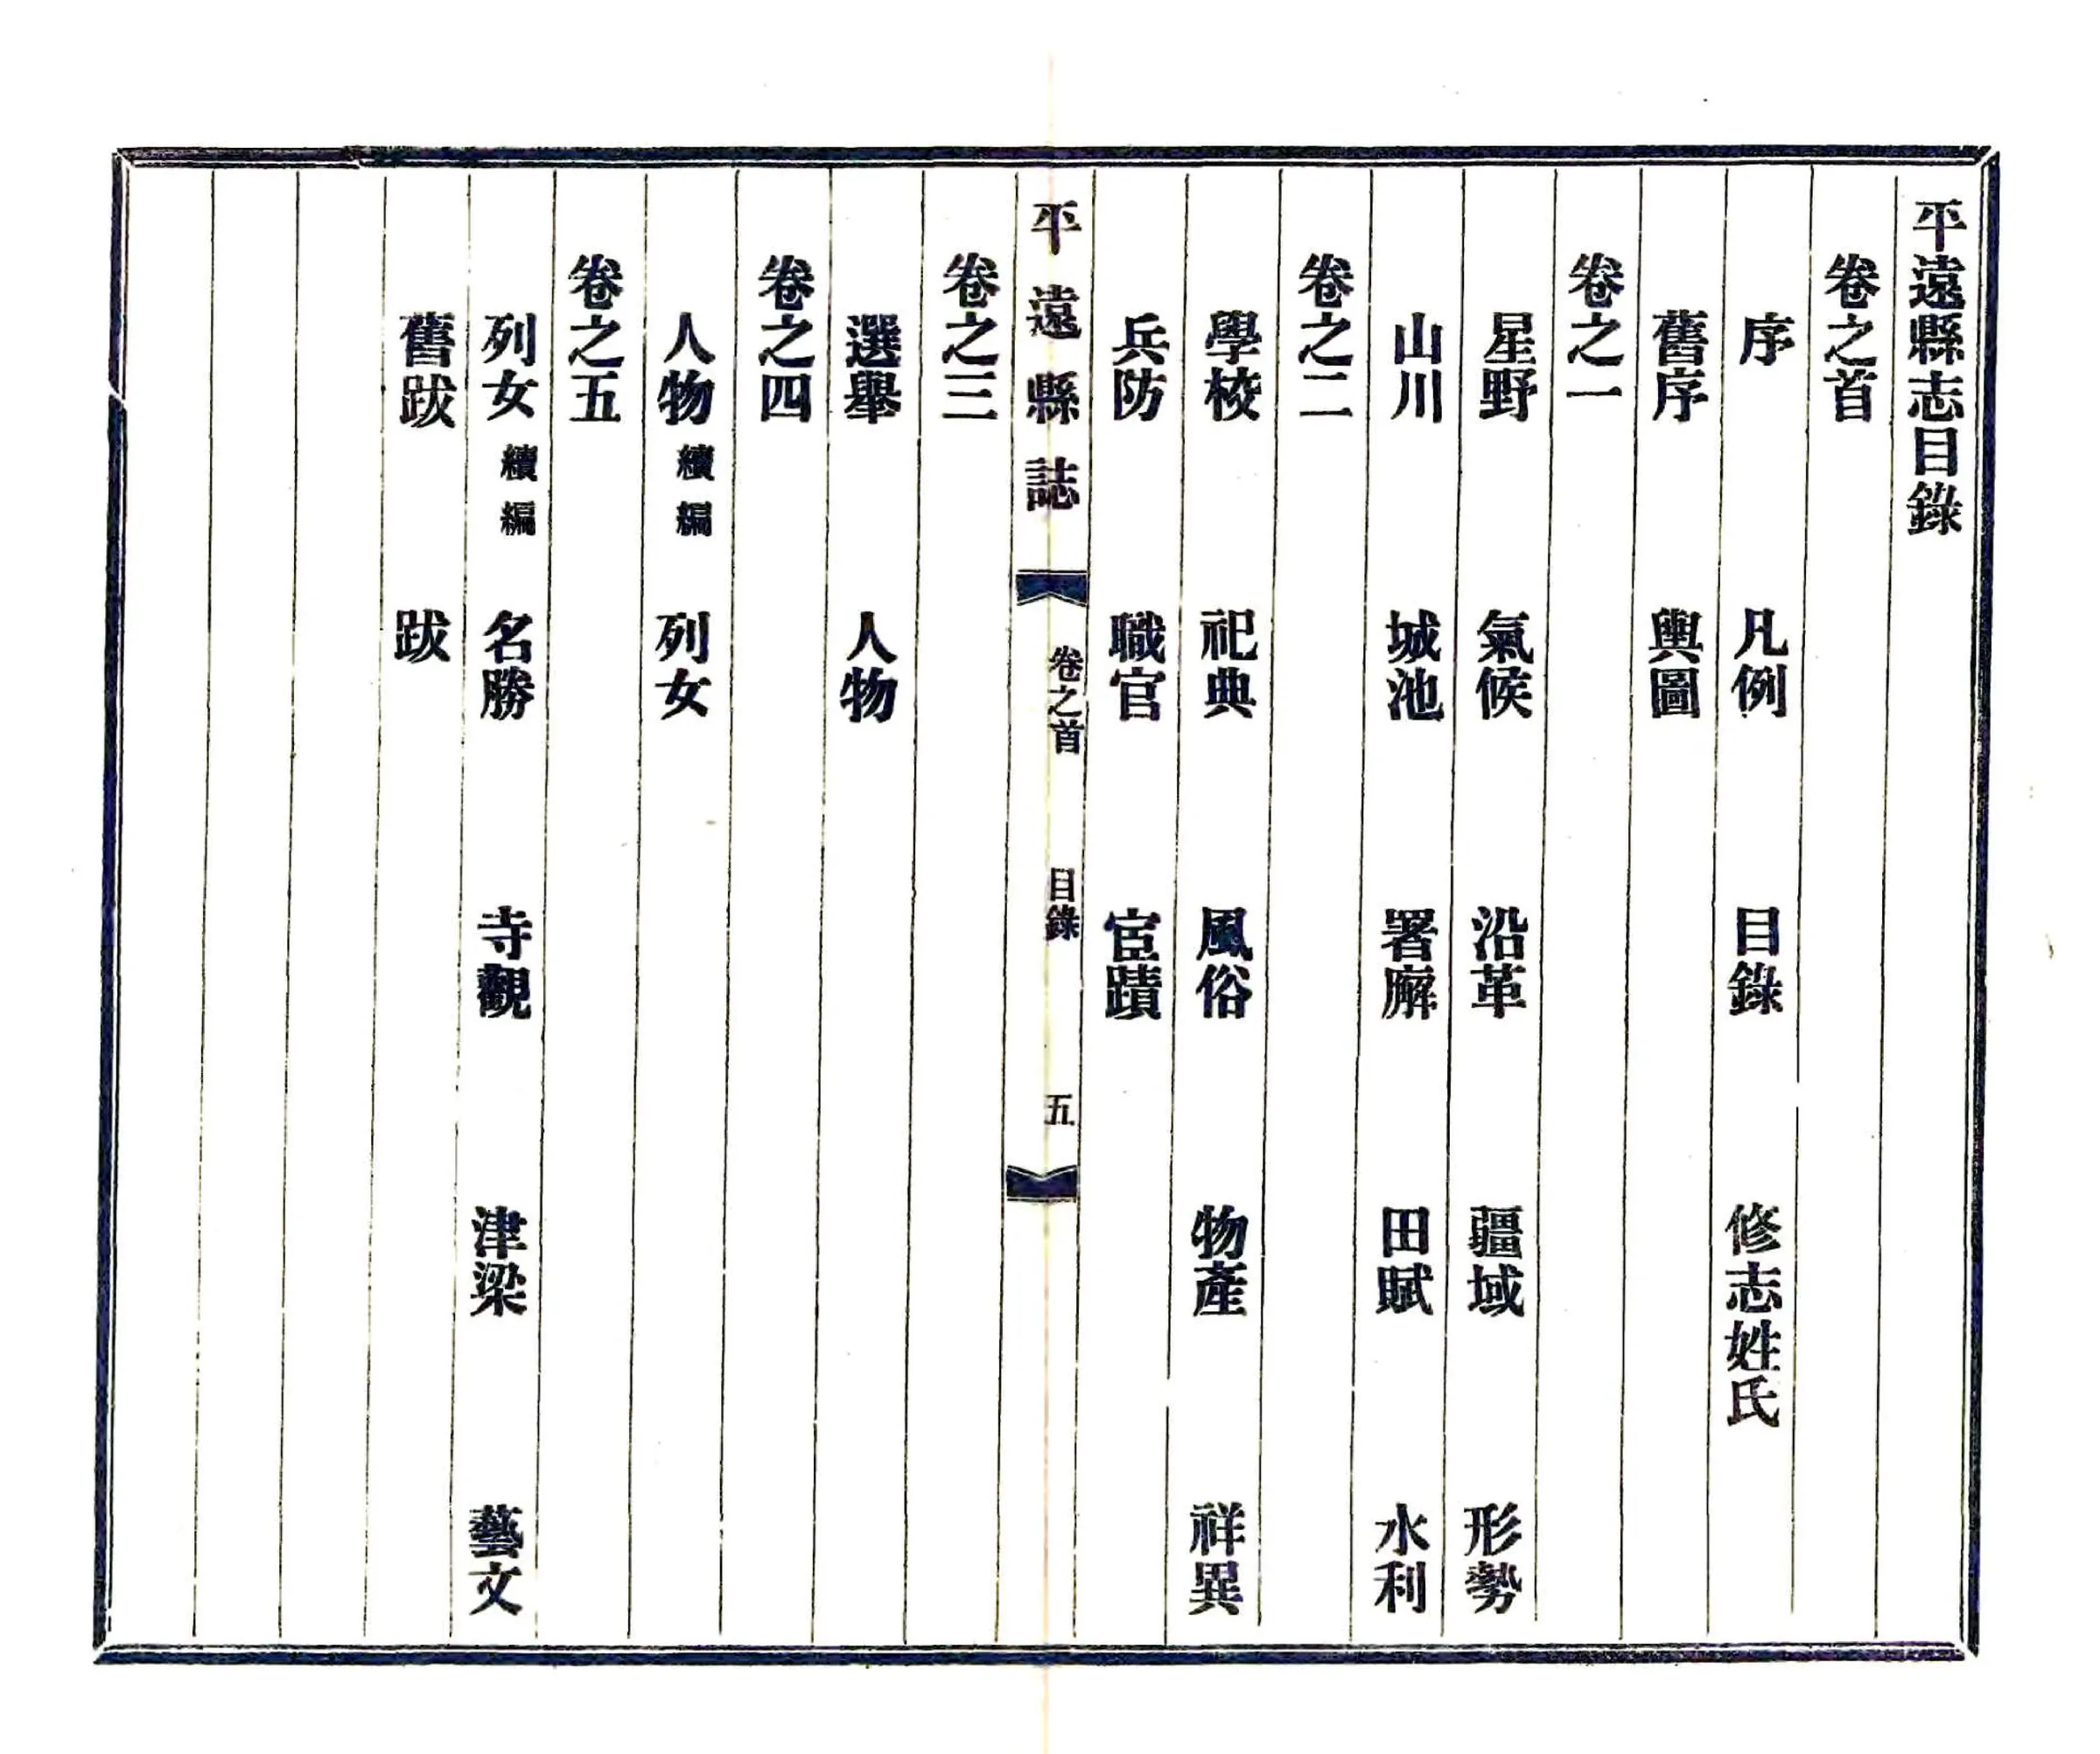 平遠縣志目錄
卷之首
序　凡例　目錄　修志姓氏
舊序　輿圖
卷之一
星野　氣候　沿革　疆域　形勢
山川　城池　署廨　田賦　水利
卷之二
學校　祀典　風俗　物產　祥異
兵防　職官　宦蹟
平遠縣誌　卷之首　目錄　五
卷之三
選舉　人物
卷之四
人物續編　列女
卷之五
列女續編　名勝　寺觀　津梁　藝文
舊跋　跋